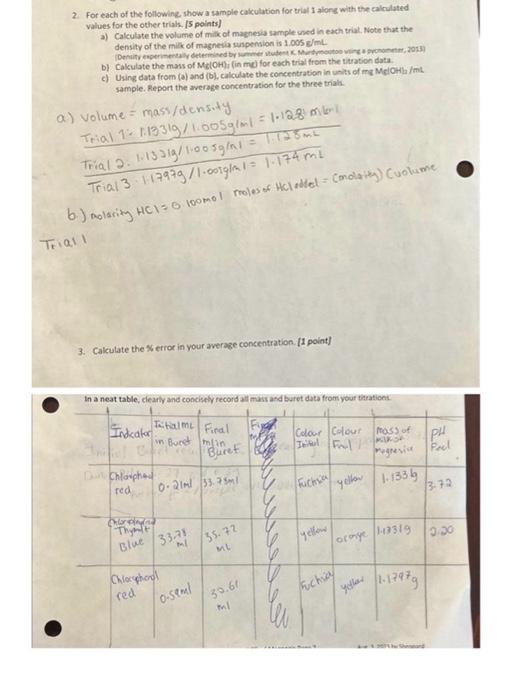 2. For each of the following, show a sample calculation for trial 1 along with the calculated
values for the other trials. [5 points]
a) Calculate the volume of milk of magnesia sample used in each trial. Note that the
density of the milk of magnesia suspension is 1.005 g/mL.
(Density experimentally determined by summer student K. Murdymootoo using a pycnometer, 2013)
b) Calculate the mass of Mg(OH)₂ (in mg) for each trial from the titration data.
c) Using data from (a) and (b), calculate the concentration in units of mg Mg(OH)₂ /mL
sample. Report the average concentration for the three trials.
a) Volume = mass/density
Trial 1: 1.1331g/1.005g/ml = 1.128
Trial 2: 1.1331g/1.005g/ml = 1.128mL
Trial 3: 1.1797g/1.005g/ml = 1.174 mL
b.) molarity HCl = 0.100mol moles of HCl added = (molarity) (volume
Trial 1
3. Calculate the % error in your average concentration. [1 point]
In a neat table, clearly and concisely record all mass and buret data from your titrations.
Indicator Initial mL in Buret Final ml in Buret Colour Initial Colour Final mass of milk of magnesia pH
Chlorophenol red 0.21ml 33.78ml Fuchsia yellow 1.133g 3.72
Thymol Blue 33.78 ml 35.72 mL yellow orange 1.1331g 2.20
Chlorophenol red 0.58ml 32.61 ml Fuchsia yellow 1.1797g